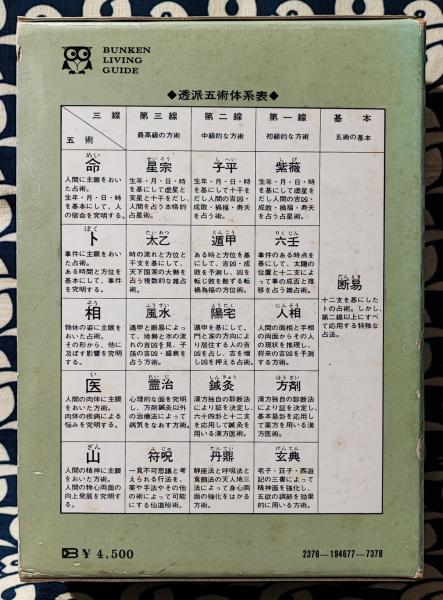 BUNKEN
LIVING
GUIDE
◆透派五術体系表◆
三線
五術
第三線
最高級の方術
第二線
中級的な方術
第一線
初級的な方術
基本
五術の基本
めい
命
人間に主眼をおい
た占術。
生年・月・日・時
を基本にして、人
の宿命を究明する。
せいそう
星宗
生年・月・日・時
を基にして虚星と
実星と十干をだし、
人間を占う本格的
占星術。
しへい
子平
生年・月・日・時
を基にして十干を
だし人間の吉凶・
成敗・禍福・寿夭
を占う方術。
しび
紫薇
生年・月・日・時
を基にして虚星を
だし人間の吉凶・
成敗・禍福・寿夭
を占う占星術。
ぼく
卜
事件に主眼をおい
た占術。
ある時間と方位を
基本にして、事件
を究明する。
たいおつ
太乙
時の流れと方位と
干支を基にして、
天下国家の大勢を
占う複数的な雑占
術。
とんこう
遁甲
ある時と方位を基
にして、吉凶・成
敗を予測し、凶を
転じ敗を敵ずる転
禍為福の方位術。
りくじん
六壬
事件のある時点を
基にして、太陽の
位置と十二支によ
って事の成否と推
移を占う雑占術。
だんえき
断易
十二支を基にし
たトの占術。しかし、
第二線以上にすべ
て応用する特殊な
占法。
そう
相
物体の姿に主眼を
おいた占術。
その形から、他に
及ぼす影響を究明
する。
ふうすい
風水
遁甲と断易によっ
て、地勢と水の流
れの吉凶を見、子
孫の吉凶・盛衰を
占う方術。
ようたく
陽宅
遁甲を基にして、
門と家の方向によ
り居住する人の吉
凶を占し、吉を増
し凶を押える占術。
にんそう
人相
人間の面相と手相
の両面からその人
の現状を推理し、
将来の吉凶を予測
する方術。
い
医
人間の肉体に主眼
をおいた方術。
肉体の疾病による
悩みを究明する。
れいち
霊治
心理的な面を究明
し、方剤鍼灸以外
の治療法によって
病気をなおす方術。
しんきゅう
鍼灸
漢方独自の診断法
により証を決定し、
六十四卦と十二支
を応用して鍼灸を
用いる漢方医術。
ほうざい
方剤
漢方独自の診断法
により証を決定し、
基本易卦を応用し
て薬方を用いる漢
方医術。
ざん
山
人間の精神に主眼
をおいた方術。
人間の物心両面の
向上発展を究明する。
符呪
一見不可思議と考
えられる行法を、
薬や手法やその他
の術によって可能に
する仙道秘術。
たんてい
丹鼎
静座法と呼吸法と
食餌法の天地人三
法によって身心両
面の強化をはかる
方術。
げんてん
玄典
老子・荘子・西遊
記の三書によって
精神面を強化し、
五欲の調節を効果
的に用いる方術。
¥4,500
2376—194677—7378